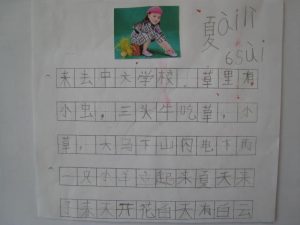 夏 àilì
6 suì
来去中大学校,草里有
小虫,三头牛吃草,小
草,大马下山闪电下雨
一只小羊 起来夏天来
春天开花白天有白云